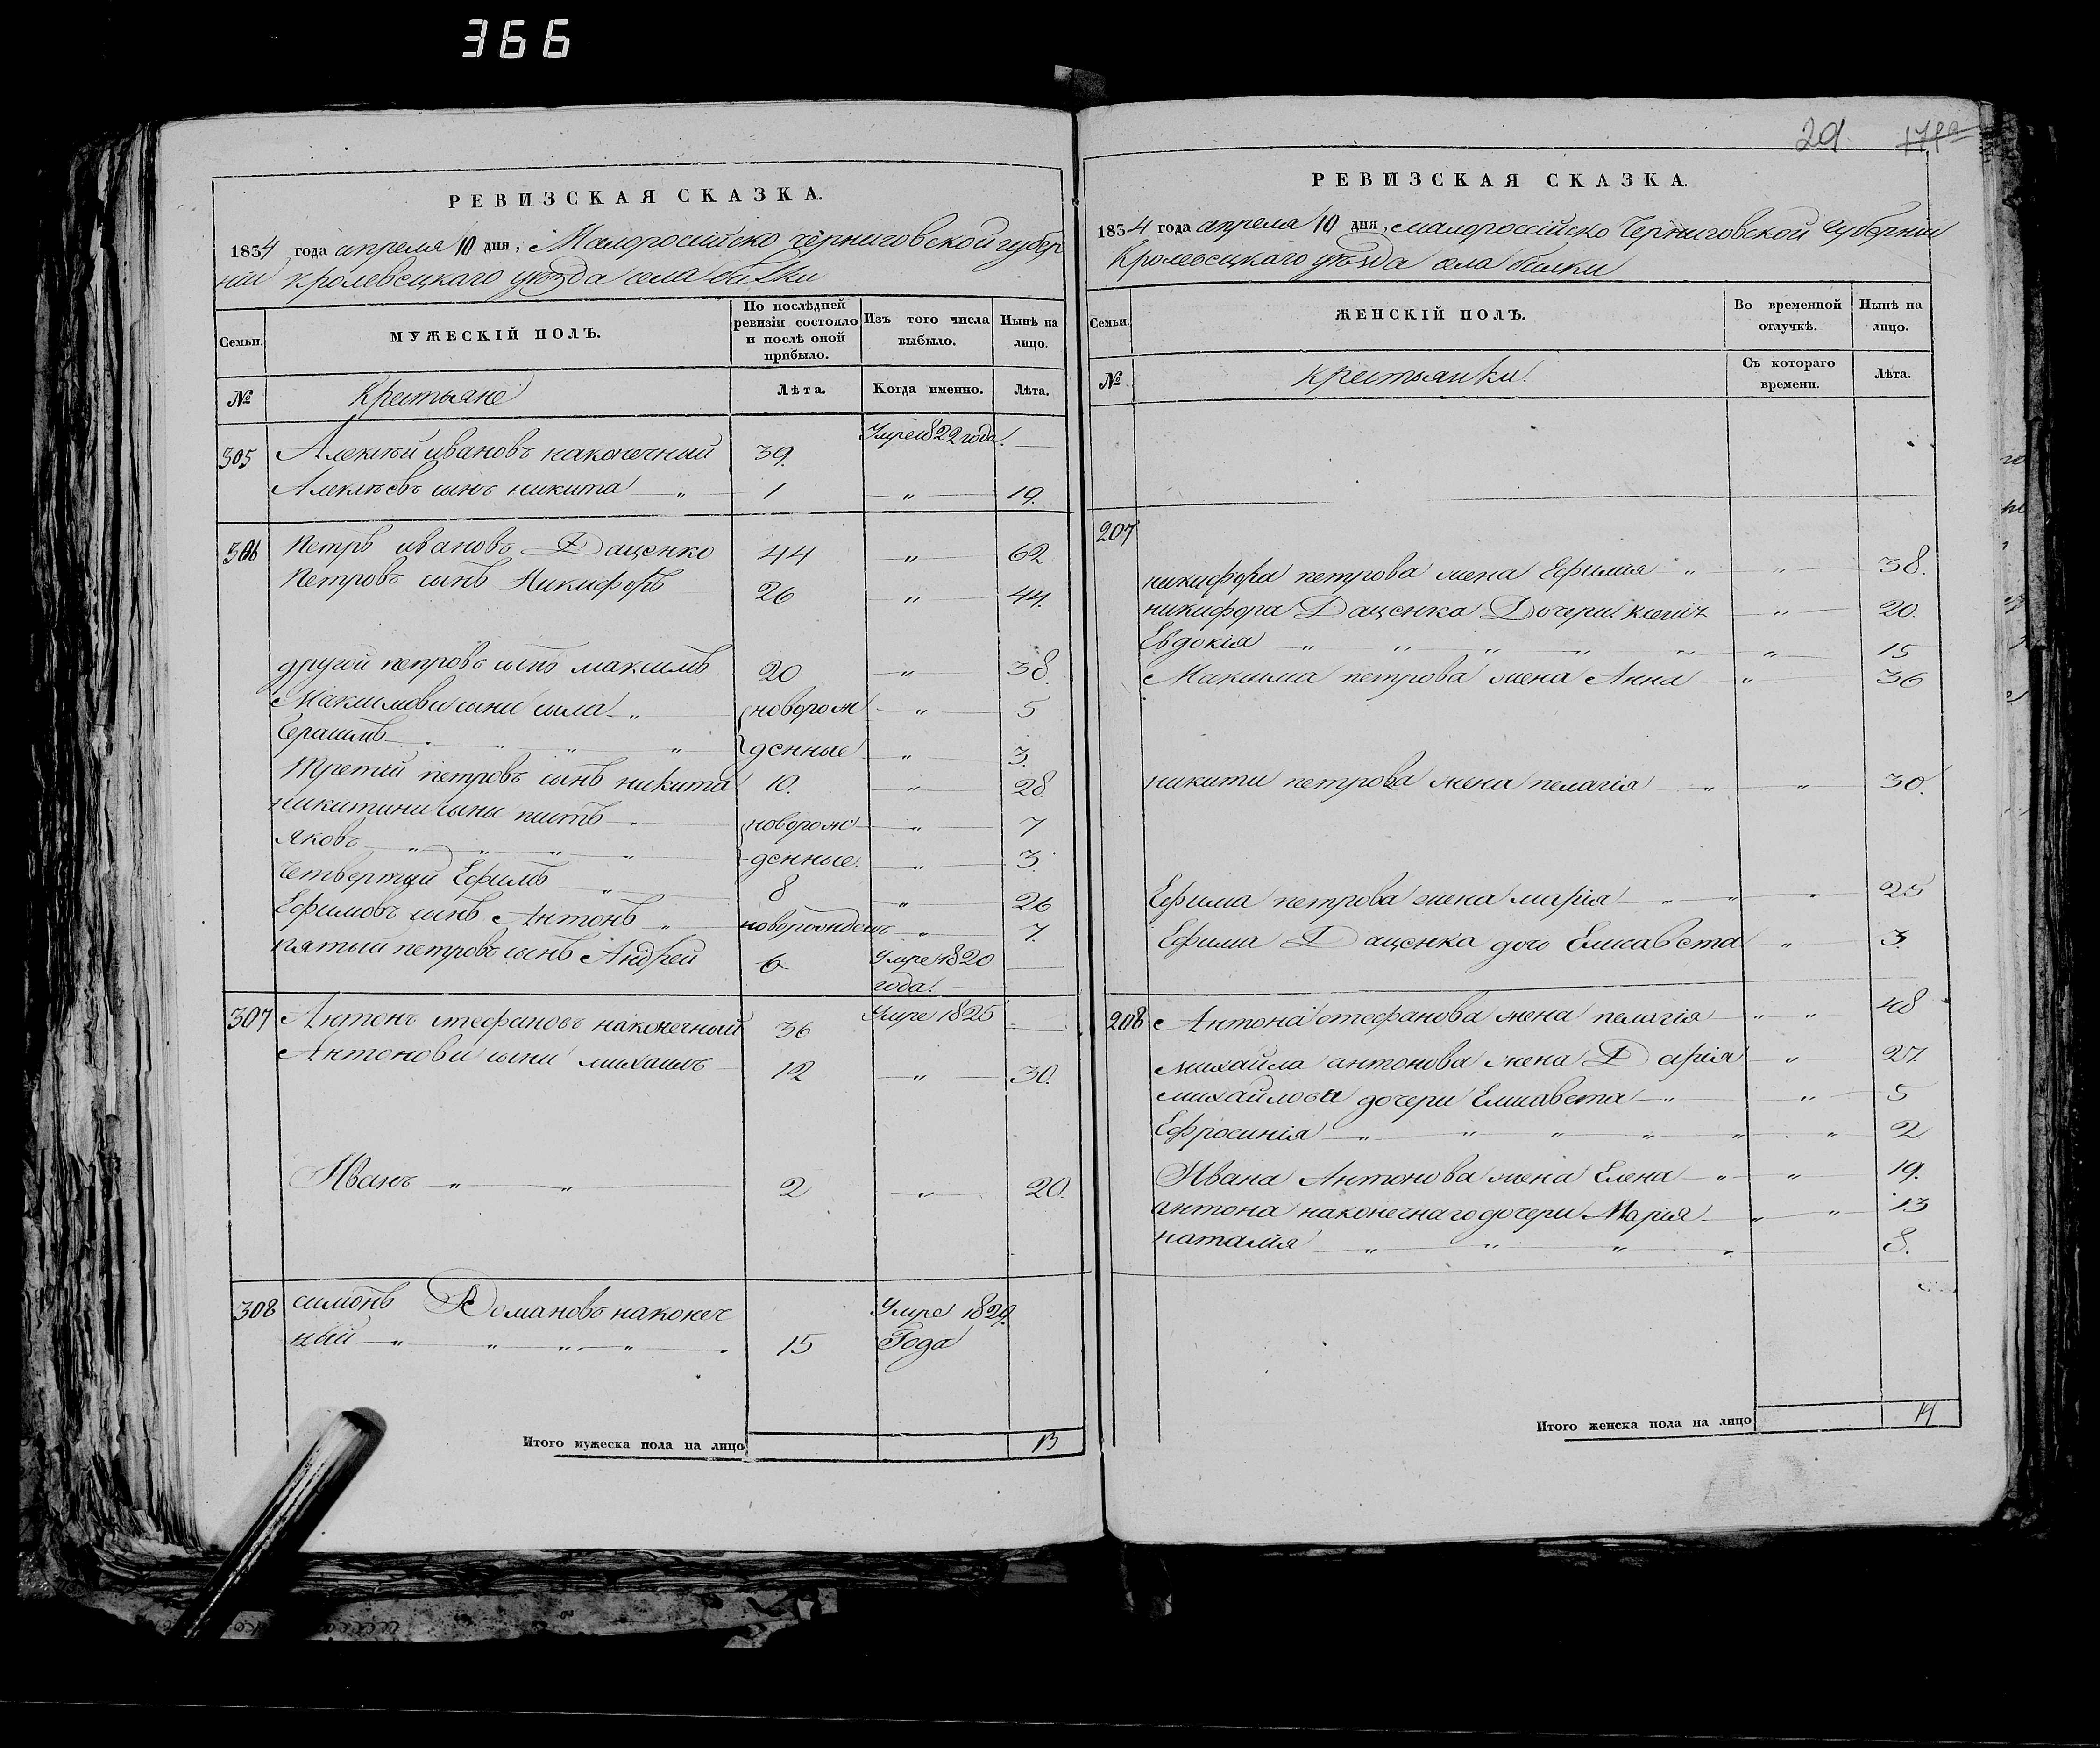 366
РЕВИЗСКАЯ СКАЗКА.
1834 года апреля 10 дня, Малоросийско черниговской губер
нии кролевецкаго уезда села билки
Семьи.
МУЖЕСКІЙ ПОЛЪ.
По послѣдней ревизіи состояло и послѣ оной прибыло.
Изъ того числа выбыло.
Нынѣ на лицо.
№
Крестьяне
Лѣта.
Когда именно.
Лѣта.
305 Алексѣй ивановъ наконечный 39. Умре 1822 года. —
Алексѣевъ сынъ никита „ 1 „ 19.
306 Петръ ивановъ Даценко 44 „ 62
Петровъ сынъ Никифоръ 26 „ 44.
другой петровъ сынъ максимъ 20 „ 38.
Максимови сини сила „ новорож „ 5
Герасимъ „ „ „ денные „ 3.
Третий петровъ сынъ никита 10. „ 28.
никитини сыни питъ „ новорож „ 7
яковъ „ „ „ „ денные. „ 3.
Четвертий Ефимъ „ 8 „ 26
Ефимовъ сынъ Антонъ „ новорожденъ „ 7.
пятый петровъ сынъ Андрей 6 Умре 1820 —
года.
307 Антонъ стефановъ наконечный 36 Умре 1825 —
Антонови сини михаилъ 12 „ 30.
Иванъ „ „ 2 „ 20.
308 симонъ Романовъ наконеч Умре 1829.
ный „ „ „ „ 15 Года
Итого мужеска пола на лицо 13
29.
РЕВИЗСКАЯ СКАЗКА.
1834 года апреля 10 дня, малороссійско Черниговской Губерніи
Кролевецкаго уѣзда села билки
Семьи.
ЖЕНСКІЙ ПОЛЪ.
Во временной отлучкѣ.
Нынѣ на лицо.
№.
крестьянки.
Съ котораго времени.
Лѣта.
207
никифора петрова жена Ефимия „ „ 38.
никифора Даценка Дочери: „ 20.
Евдокія „ „ „ „ „ „ 15
Максима петрова жена Анна „ 36
никити петрова жена пелагія „ „ 30.
Ефима петрова жена марія „ „ „ 25
Ефима Даценка дочь Елисавета „ 3.
208 Антона стефанова жена пелагія „ „ 48
михайла антонова жена Дарія „ 27.
михайлови дочери Елисавета „ „ 5
Ефросинія „ „ „ „ „ „ 2
Ивана Антонова жена Елена „ „ 19.
антона наконечнаго дочери Мария „ „ 13
наталія „ „ „ „ 8.
Итого женска пола на лицо 14